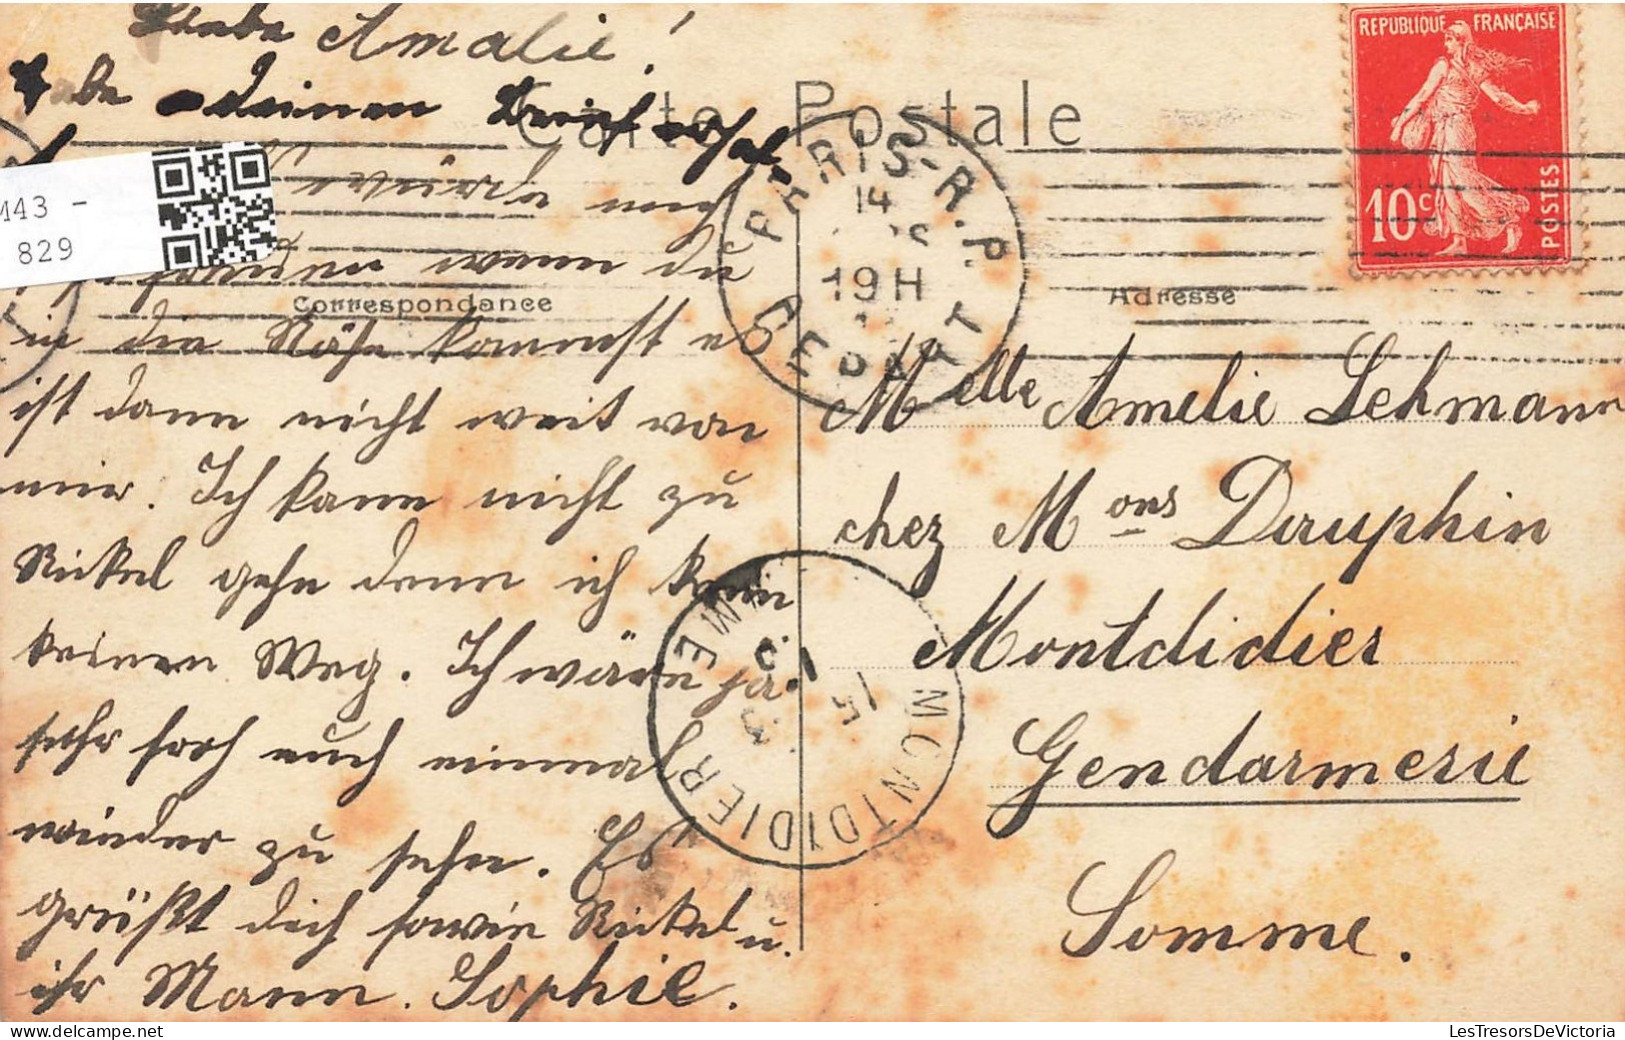 Liebe Amalie!
habe deinen Brief erhal-
Carte Postale
RÉPUBLIQUE FRANÇAISE
10c
POSTES
PARIS-R.P.
DEPART
14
19H
M43 -
829
würde mich
freuen wenn du
Correspondance
Adresse
in die Nähe kommst es
ist dann nicht weit von
mir. Ich kann nicht zu
Rickel gehn denn ich kenn
keinen Weg. Ich wäre ja
sehr froh auch einmal
wieder zu sehn. Es
grüßt dich sowie Rickel u.
ihr Mann. Sophie.
Melle Amelie Lehmann
chez Mons Dauphin
Montdidier
Gendarmerie
Somme.
MONTDIDIER
SOMME
15
LesTresorsDeVictoria